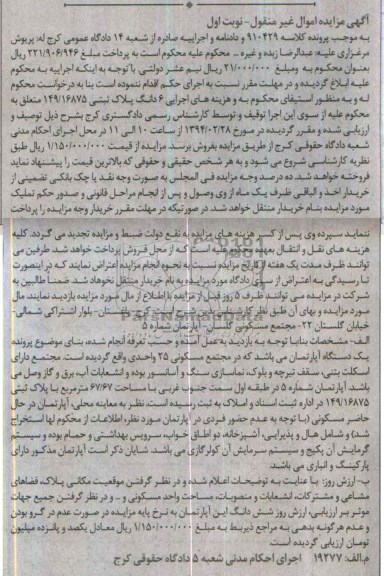 آگهی مزایده اموال غیر منقول - نوبت اول
به موجب پرونده کلاسه ۹۱۰۴۲۹ و دادنامه و اجراییه صادره از شعبه ۱۴ دادگاه عمومی کرج له: پریوش
مرغزاری علیه: عبدالرضا زیده و غیره ... محکوم علیه محکوم است به پرداخت مبلغ ۲۲۱/۹۰۶/۹۴۶ ریال
بعنوان محکوم به ومبلغ ۲۱/۰۰۰/۰۰۰ ریال نیم عشر دولتی با توجه به اینکه اجراییه به محکوم
علیه ابلاغ گردیده و در مهلت مقرر نسبت به اجرای حکم اقدام ننموده است بنا به درخواست محکوم
له و به منظور استیفای محکوم به و هزینه های اجرایی ۶ دانگ پلاک ثبتی ۱۴۹/۱۶۸۷۵ متعلق به
محکوم علیه از سوی این اجرا توقیف و توسط کارشناس رسمی دادگستری کرج بشرح ذیل توصیف و
ارزیابی شده و مقرر گردیده در مورخ ۱۳۹۴/۰۲/۲۸ از ساعت ۱۰ الی ۱۱ در محل اجرای احکام مدنی
شعبه دادگاه حقوقی کرج از طریق مزایده بفروش برسد. مزایده از قیمت ۱/۱۵۰/۰۰۰/۰۰۰ ریال طبق
نظریه کارشناسی شروع می شود و به هر شخص حقیقی و حقوقی که بالاترین قیمت را پیشنهاد نماید
فروخته خواهد شد. ده درصد وجه مزایده فی المجلس به صورت وجه نقد یا چک بانکی تضمینی از
خریدار اخذ و الباقی ظرف یک ماه از وی وصول و پس از انجام مراحل قانونی و صدور حکم تملیک
مورد مزایده بنام خریدار منتقل خواهد شد. در صورتیکه در مهلت مقرر خریدار وجه مزایده را پرداخت
ننماید سپرده وی پس از کسر هزینه های مزایده به نفع دولت ضبط و مزایده تجدید می گردد. کلیه
هزینه های نقل و انتقال بعهده محکوم علیه است که از محل فروش پرداخت خواهد شد. طرفین می
توانند ظرف مدت یک هفته از تاریخ مزایده نسبت به نحوه انجام مزایده اعتراض نمایند که در اینصورت
تا رسیدگی به اعتراض از سوی دادگاه مورد مزایده به نام خریدار منتقل نخواهد شد. ضمنا طالبین به
شرکت در مزایده می توانند ظرف ۵ روز قبل از مزایده با اطلاع از مال مورد مزایده بازدید نمایند. مال
مورد مزایده و بهای آن طبق نظر کارشناس به شرح کرج - گلستان - بلوار اشتراکی شمالی -
خیابان گلستان ۲۲ - مجتمع مسکونی گلسان - آپارتمان شماره ۵
الف - مشخصات بنا: با توجه به بازدید به عمل آمده و حسب تعرفه انجام شده، بنای موضوع پرونده
یک دستگاه آپارتمان می باشد که در مجتمع مسکونی ۲۵ واحدی واقع گردیده است. مجتمع دارای
اسکلت بتنی، سقف تیرچه و بلوک، نماسازی سنگ و آسانسور بوده و انشعابات آب، برق و گاز وصل می
باشد. آپارتمان شماره ۵ در طبقه اول سمت جنوب غربی با مساحت ۶۷/۶۷ مترمربع با پلاک ثبتی
۱۴۹/۱۶۸۷۵ در اداره ثبت اسناد و املاک به ثبت رسیده است. نظر به معاینه محلی، آپارتمان در حال
حاضر مسکونی (با توجه به عدم حضور فردی در آپارتمان مورد نظر، اطلاعات از محکوم لها استخراج
شد) و شامل هال و پذیرایی، آشپزخانه، دو اطاق خواب، سرویس بهداشتی و حمام بوده و سیستم
گرمایش آن پکیج و سیستم سرمایش آن کولر گازی می باشد. شایان ذکر است آپارتمان مذکور دارای
پارکینگ و انباری می باشد.
ب - ارزش روز: با عنایت به توضیحات اعلام شده و در نظر گرفتن موقعیت مکانی پلاک، فضاهای
مشاعی و مشترکات، انشعابات و منصوبات، مساحت واحد مسکونی و ... و در نظر گرفتن جمیع جهات
موثر بر ارزیابی، ارزش روز شش دانگ این آپارتمان به نرخ پایه مزایده در صورت عدم در گرو بودن
و عدم هرگونه بدهی به مراجع ذیربط به مبلغ ۱/۱۵۰/۰۰۰/۰۰۰ ریال معادل یکصد و پانزده میلیون
تومان ارزیابی گردیده است.
م.الف: ۱۹۲۷۷ اجرای احکام مدنی شعبه ۵ دادگاه حقوقی کرج